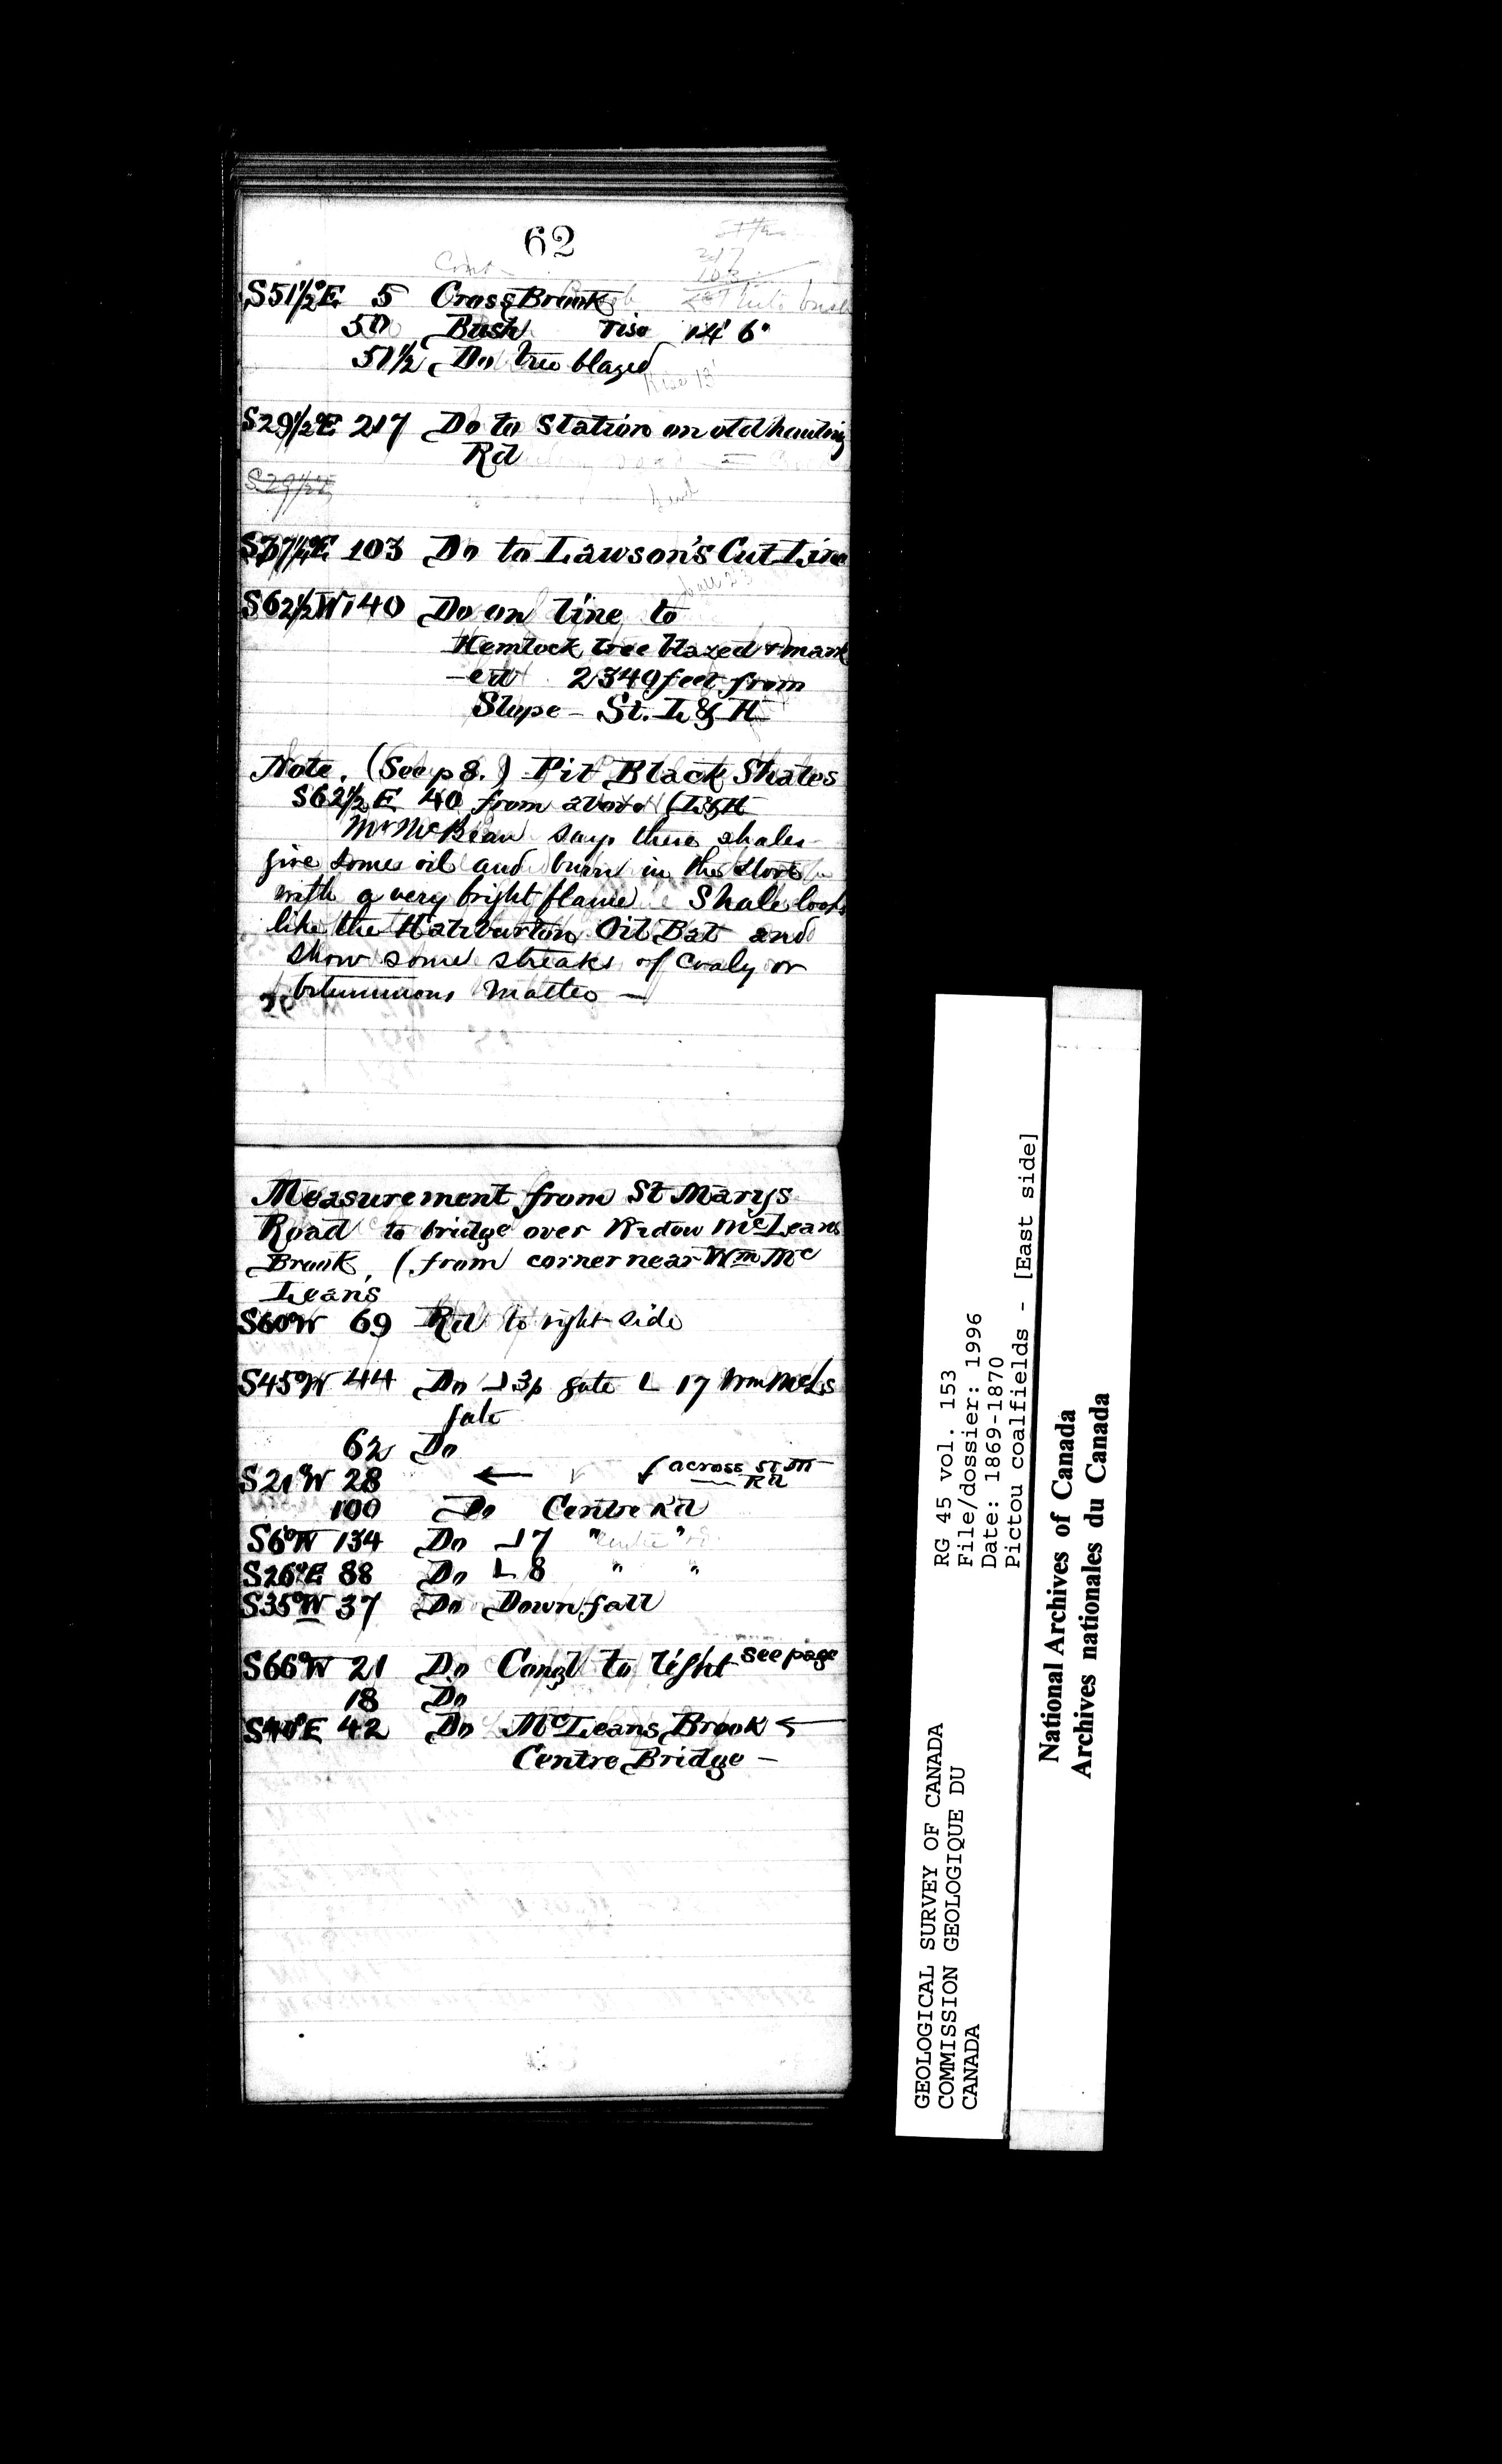 62
S51½°E 5 Cross Brook
50 Bush rise 14' 6"
51½ Do tree blazed
S29½°E 217 Do to Station on old hauling
Rd
S29½°E
103 Do to Lawson's Cut Line
S62½W 140 Do on line to
Hemlock tree blazed & mark
-ed 2349 feet from
Slope - St. L & H
Note. (See p 8.) Pit Black Shales
S62½ E 40 from above (L&H
Mr McBean says these shales
give some oil and burn in the stove
with a very bright flame Shale looks
like the Haliburton Oil Bat and
show some streaks of Coaly or
bituminous matter —
Measurement from St Marys
Road to bridge over Widow McLeans
Brook, (from corner near Wm Mc
Leans
S60°W 69 Rd to right side
S45°W 44 Do ⅃ 3p gate L 17 Wm McLs
gate
62 Do
S21°W 28 ← (across St M
Rd
100 Do Centre Rd
S6°W 134 Do ⅃ 7 "Centre" rd
S26°E 88 Do L 8 " "
S35°W 37 Do Down fall
S66°W 21 Do Congl to right see page
18 Do
S40°E 42 Do McLeans Brook ←
Centre Bridge —
GEOLOGICAL SURVEY OF CANADA
COMMISSION GEOLOGIQUE DU
CANADA
RG 45 vol. 153
File/dossier: 1996
Date: 1869-1870
Pictou coalfields - [East side]
National Archives of Canada
Archives nationales du Canada